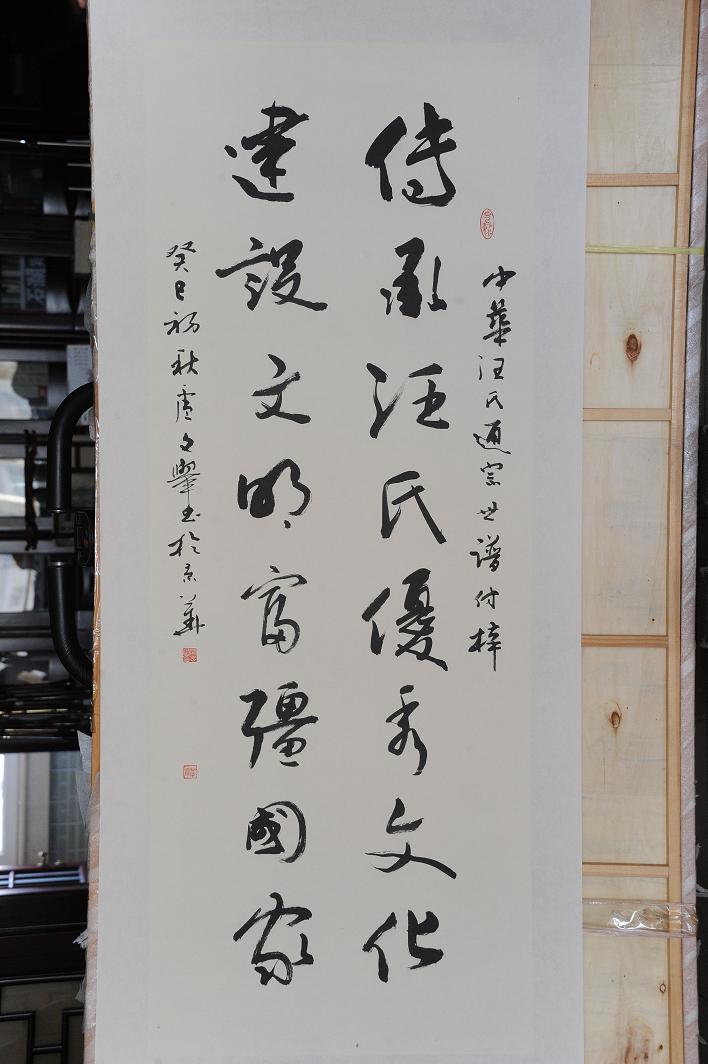 中華汪氏通宗世譜付梓
傳承汪氏優秀文化
建設文明富疆國家
癸巳初秋盧文舉書於京華